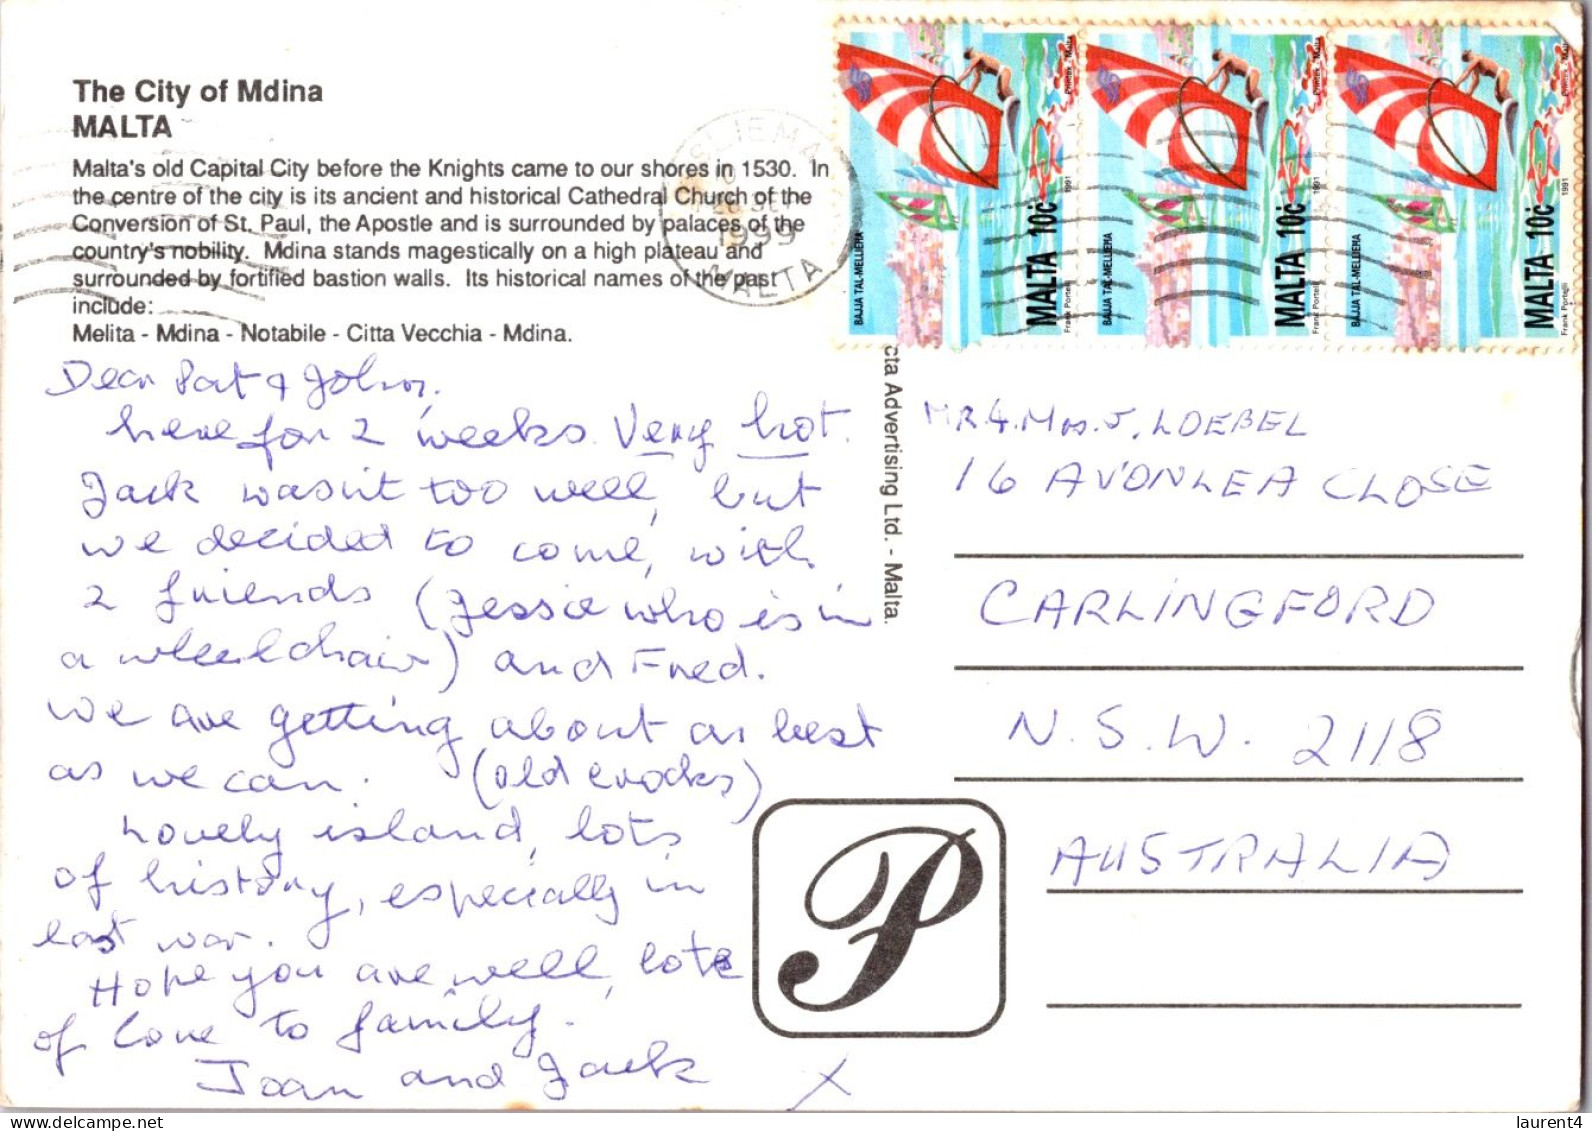 The City of Mdina
MALTA
Malta's old Capital City before the Knights came to our shores in 1530. In
the centre of the city is its ancient and historical Cathedral Church of the
Conversion of St. Paul, the Apostle and is surrounded by palaces of the
country's nobility. Mdina stands magestically on a high plateau and
surrounded by fortified bastion walls. Its historical names of the past
include:
Melita - Mdina - Notabile - Citta Vecchia - Mdina.
Dear Pat & John,
here for 2 weeks. Very hot.
Jack wasn't too well, but
we decided to come, with
2 friends (Jessie who is in
a wheelchair) and Fred.
We are getting about as best
as we can. (old crocks)
Lovely island, lots
of history, especially in
last war.
Hope you are well, lots
of love to family.
Joan and Jack X
SLIEMA
1999
MALTA
BAJJA TAL-MELLIEĦA
MALTA 10c
Frank Portelli
1991
Printex, Malta
BAJJA TAL-MELLIEĦA
MALTA 10c
Frank Portelli
1991
Printex, Malta
BAJJA TAL-MELLIEĦA
MALTA 10c
Frank Portelli
1991
Printex, Malta
cta Advertising Ltd. - Malta.
MR & Mrs. J. LOEBEL
16 AVONLEA CLOSE
CARLINGFORD
N.S.W. 2118
AUSTRALIA
P
laurent4